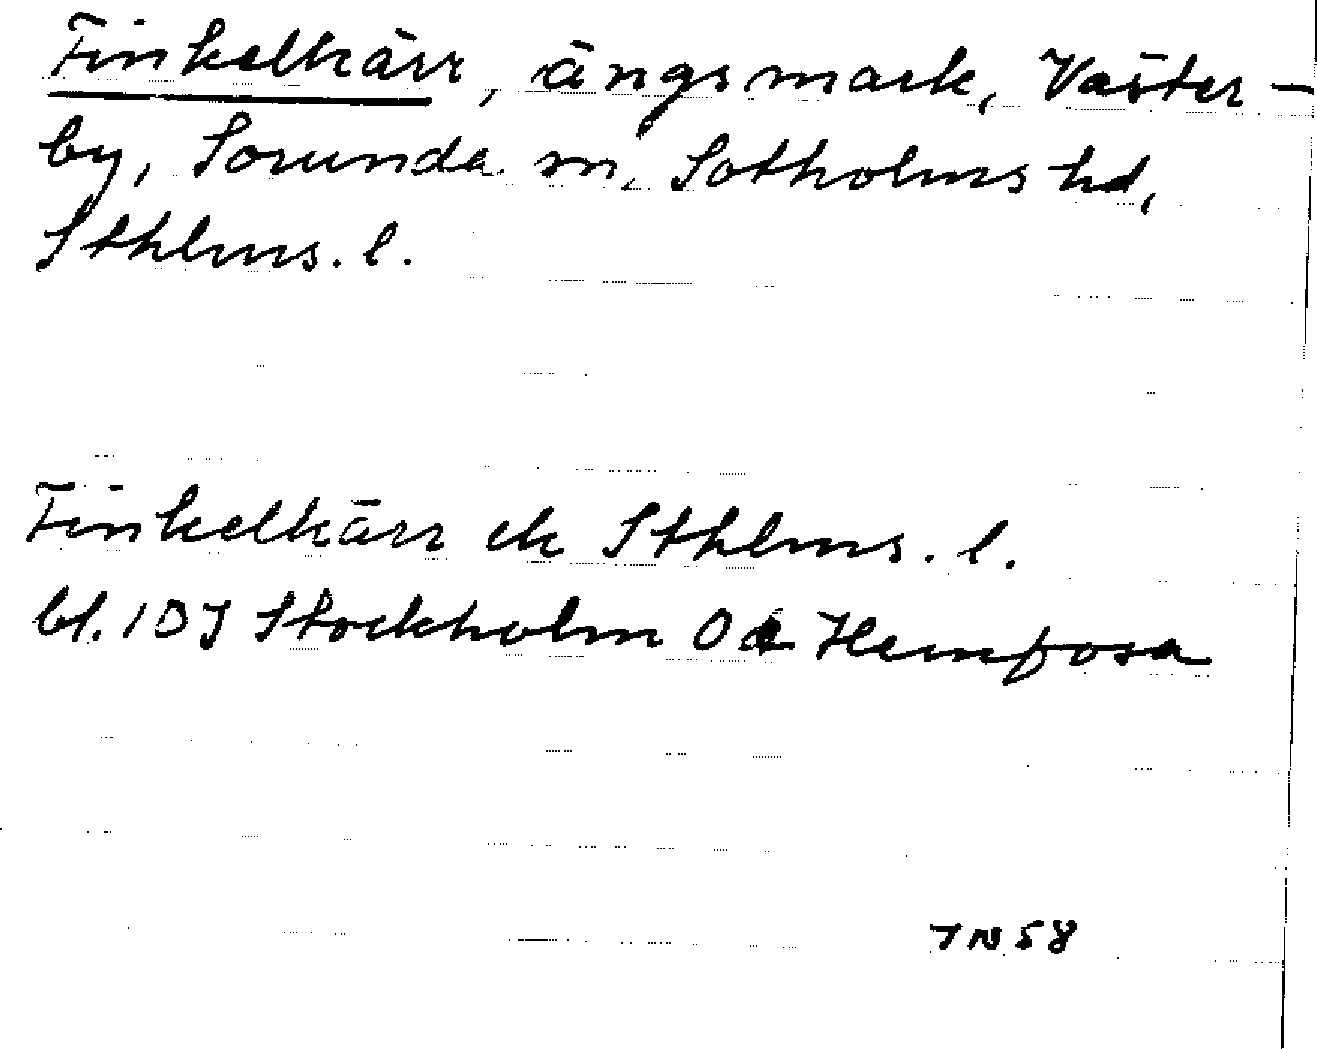 Finkelkärr, ängsmark, Väster-
by, Sorunda sn, Sotholms hd,
Sthlms. l.
Finkelkärr ek Sthlms. l.
bl. 10J Stockholm Hemfosa
TN58